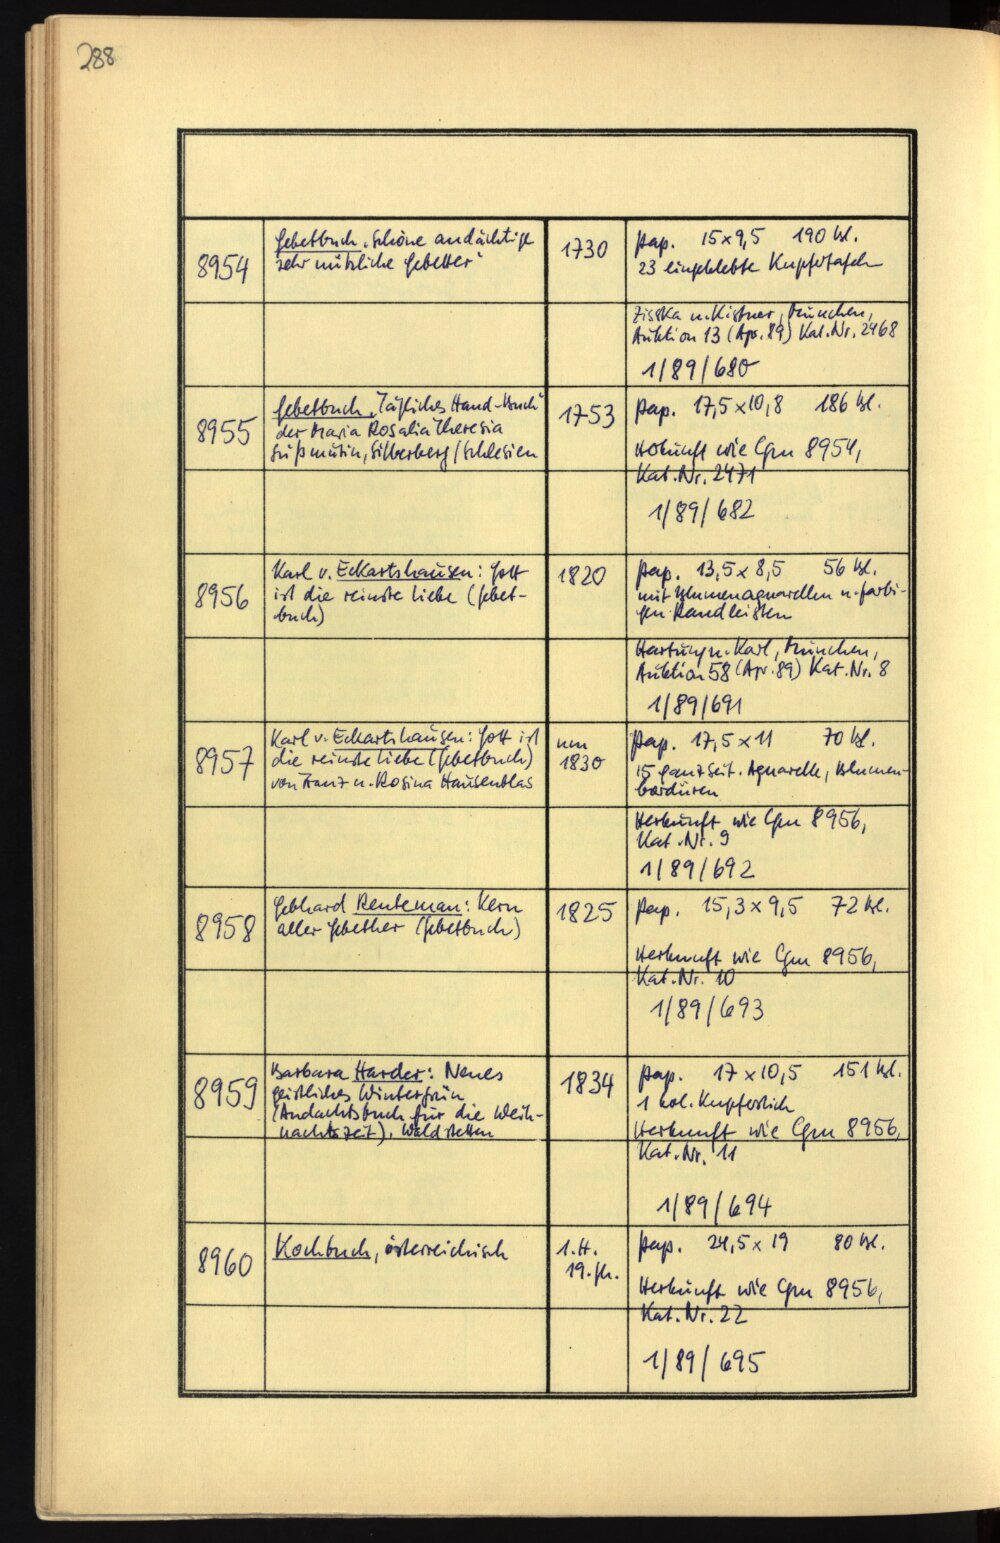 288
8954
Gebetbuch „Schöne andächtige
sehr nützliche Gebetter“
1730
Pap. 15x9,5 190 Bl.
23 eingeklebte Kupfertafeln
Zisska u. Kistner, München,
Auktion 13 (Apr. 89) Kat.Nr. 2468
1/89/680
8955
Gebetbuch „Tägliches Hand-Buch“
der Maria Rosalia Theresia
Silberberg/Schlesien
1753
Pap. 17,5x10,8 186 Bl.
Herkunft wie Cgm 8954,
Kat.Nr. 2471
1/89/682
8956
Karl v. Eckartshausen: Gott
ist die reinste Liebe (Gebet-
buch)
1820
Pap. 13,5x8,5 56 Bl.
mit Blumenaquarellen u. farbi-
gen Randleisten
Hartung u. Karl, München,
Auktion 58 (Apr. 89) Kat.Nr. 8
1/89/691
8957
Karl v. Eckartshausen: Gott ist
die reinste Liebe (Gebetbuch)
von Franz u. Rosina Hausenblas
um
1830
Pap. 17,5x11 70 Bl.
15 ganzseit. Aquarelle, Blumen-
bordüren
Herkunft wie Cgm 8956,
Kat.Nr. 9
1/89/692
8958
Gebhard Renteman: Kern
aller Gebether (Gebetbuch)
1825
Pap. 15,3x9,5 72 Bl.
Herkunft wie Cgm 8956,
Kat.Nr. 10
1/89/693
8959
Barbara Harder: Neues
geistliches Wintergrün
(Andachtsbuch für die Weih-
nachtszeit), Waldstetten
1834
Pap. 17x10,5 151 Bl.
1 kol. Kupferstich
Herkunft wie Cgm 8956,
Kat.Nr. 11
1/89/694
8960
Kochbuch, österreichisch
1.H.
19.Jh.
Pap. 24,5x19 80 Bl.
Herkunft wie Cgm 8956,
Kat.Nr. 22
1/89/695